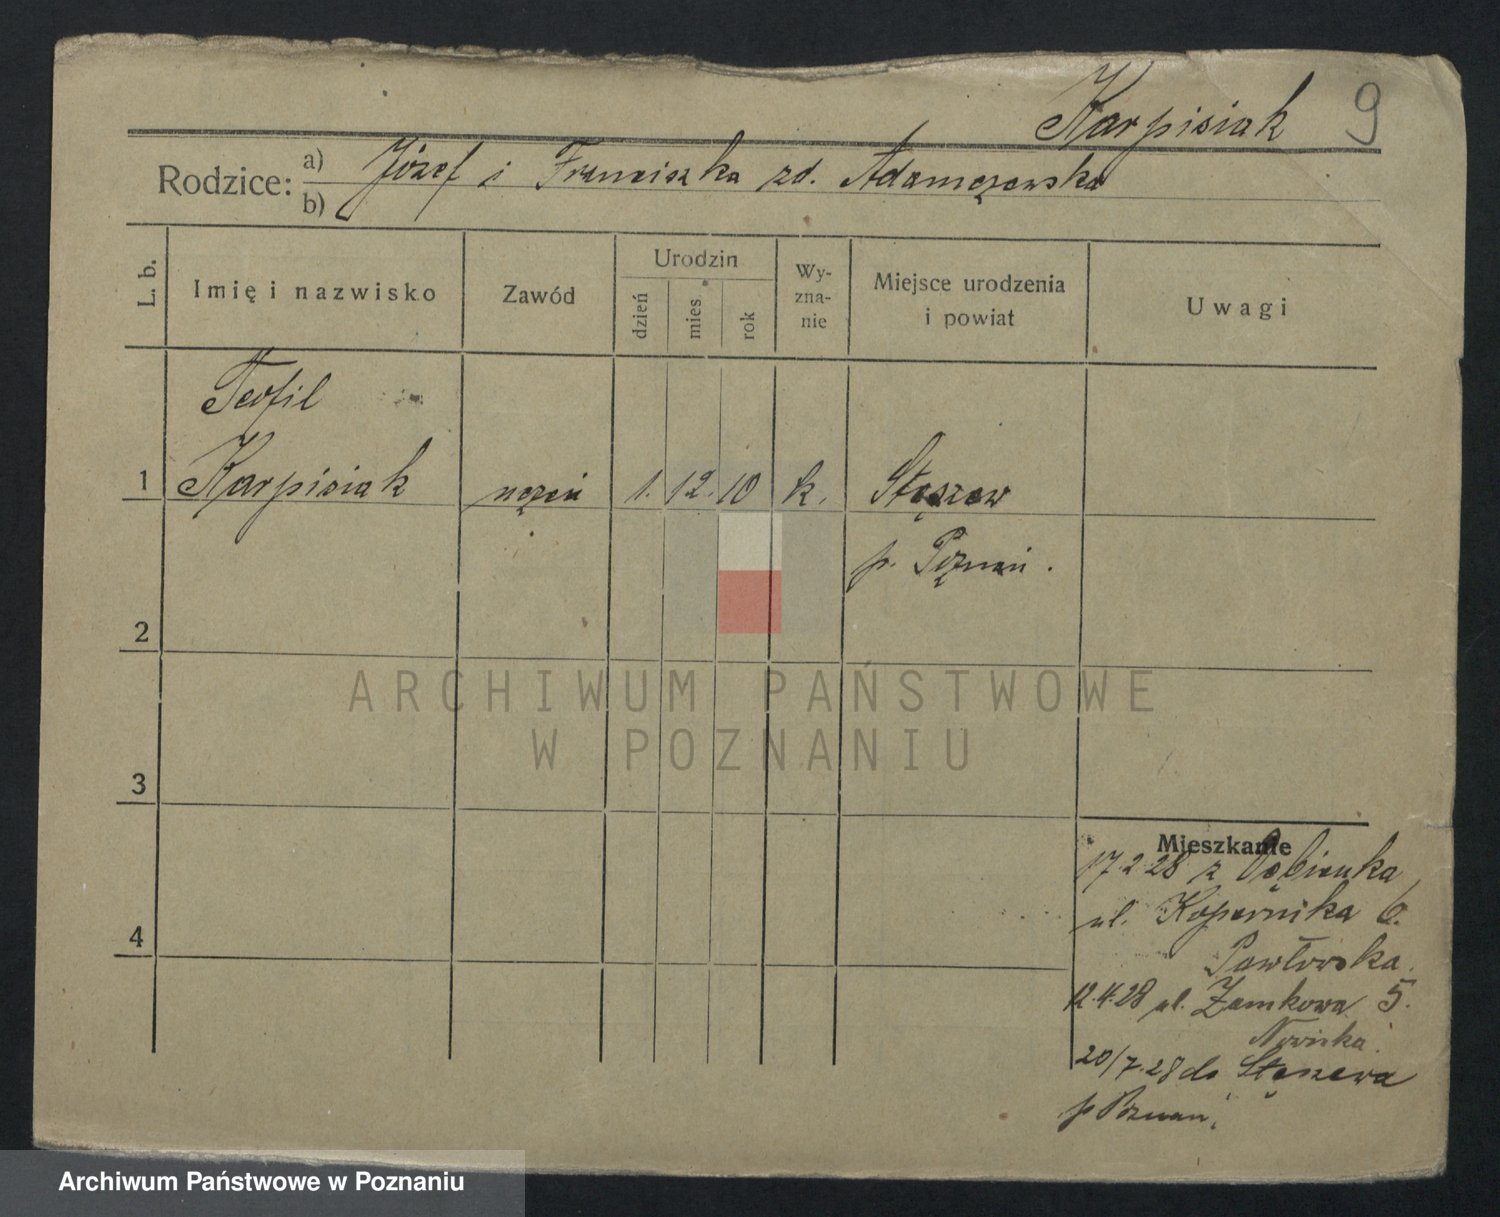 Karpisiak 9
Rodzice: a) Józef i Franciszka zd. Adamczewska
b)
L. b.
Imię i nazwisko
Zawód
Urodzin
dzień
mies.
rok
Wy-
zna-
nie
Miejsce urodzenia
i powiat
Uwagi
Teofil
1 Karpisiak uczeń 1. 12. 10 k. Stęszew
p. Poznań.
2
3
4
Mieszkanie
17.2.28 z
ul. Kopernika 6.
Pawłowska
12.4.28 ul. Zamkowa 5.
Nowicka
20/7.28 do Stęszewa
p Poznań.
ARCHIWUM PAŃSTWOWE
W POZNANIU
Archiwum Państwowe w Poznaniu